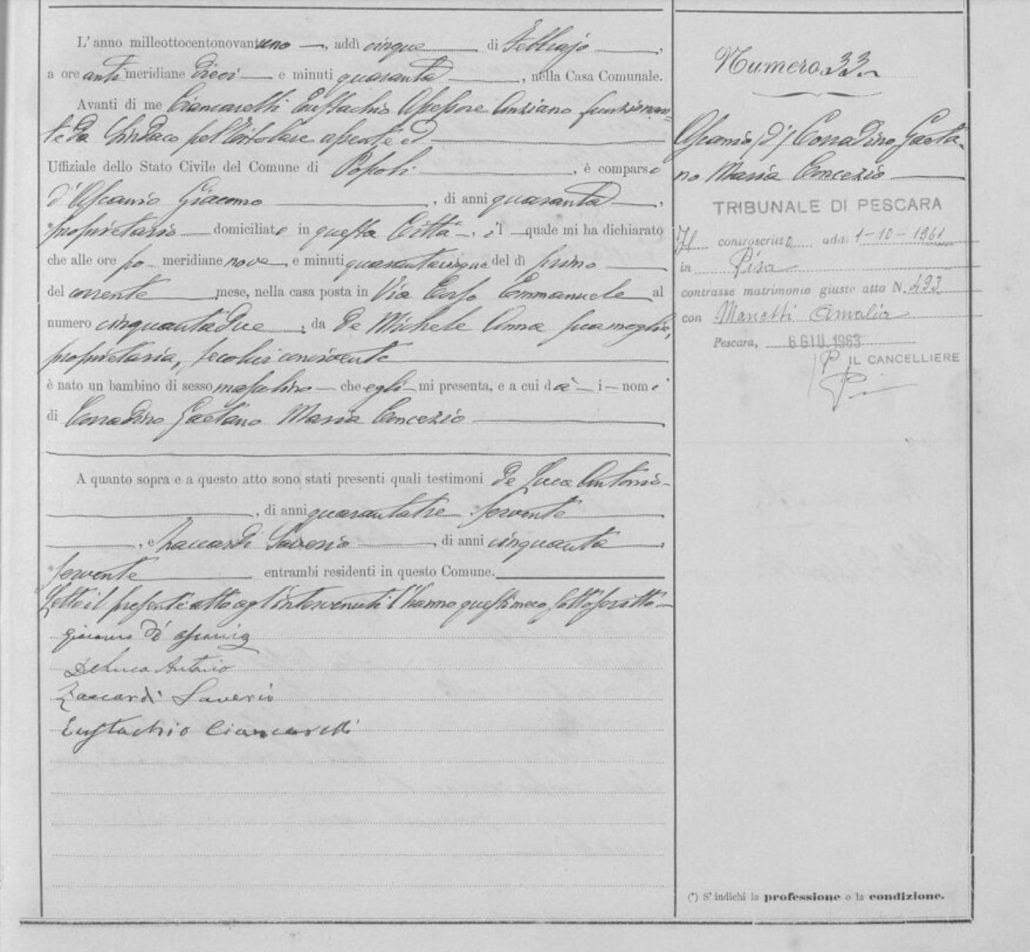 L'anno milleottocentonovantuno, addì cinque di Febbrajo,
a ore antimeridiane dieci e minuti quaranta, nella Casa Comunale.
Avanti di me Ciancarelli Eustachio Assessore Anziano funzionan-
te da Sindaco pel titolare assente ed
Uffiziale dello Stato Civile del Comune di Popoli, è comparso
d'Ascanio Giacomo, di anni quaranta,
proprietario domiciliato in questa Città, il quale mi ha dichiarato
che alle ore po meridiane nove e minuti quarantacinque del dì primo
del corrente mese, nella casa posta in Via Corso Emmanuele al
numero cinquantadue, da De Michele Anna sua moglie,
proprietaria, secolui convivente
è nato un bambino di sesso mascolino che egli mi presenta, e a cui dà i nomi
di Corradino Gaetano Maria Concezio
A quanto sopra e a questo atto sono stati presenti quali testimoni De Luca Antonio
, di anni quarantatre servente
, e Zaccardi Saverio, di anni cinquanta
servente entrambi residenti in questo Comune.
Letto il presente atto agl'intervenuti l'hanno questi meco sottoscritto
Giacomo d'Ascanio
De Luca Antonio
Zaccardi Saverio
Eustachio Ciancarelli
Numero 33
Ascanio (d') Corradino Gaeta-
no Maria Concezio
TRIBUNALE DI PESCARA
Il controscritto addì 1-10-1961
in Pisa
contrasse matrimonio giusto atto N. 433
con Manetti Amalia
Pescara, 6 GIU 1963
IL CANCELLIERE
(*) S'indichi la professione o la condizione.